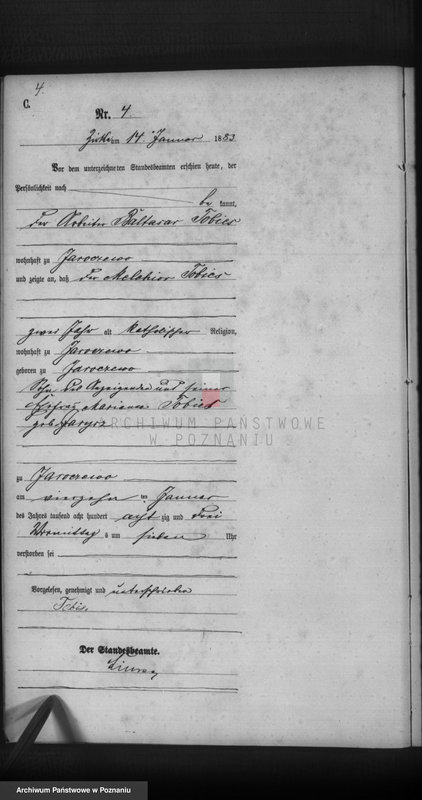 4.
C.
Nr. 4.
Zirke am 14 Januar 1883.
Vor dem unterzeichneten Standesbeamten erschien heute, der
Persönlichkeit nach
be kannt,
der Arbeiter Baltasar Tobies
wohnhaft zu Jaroczewo
und zeigte an, daß der Melchior Tobies
zwei Jahr alt katholischer Religion,
wohnhaft zu Jaroczewo
geboren zu Jaroczewo
Sohn des Anzeigenden und seiner
Ehefrau Marianna Tobies
geb.
ARCHIWUM PAŃSTWOWE
W POZNANIU
zu Jaroczewo
am vierzehn ten Januar
des Jahres tausend acht hundert acht zig und drei
Vormittag s um sieben Uhr
verstorben sei
Vorgelesen, genehmigt und unterschrieben
Der Standesbeamte.
Archiwum Państwowe w Poznaniu